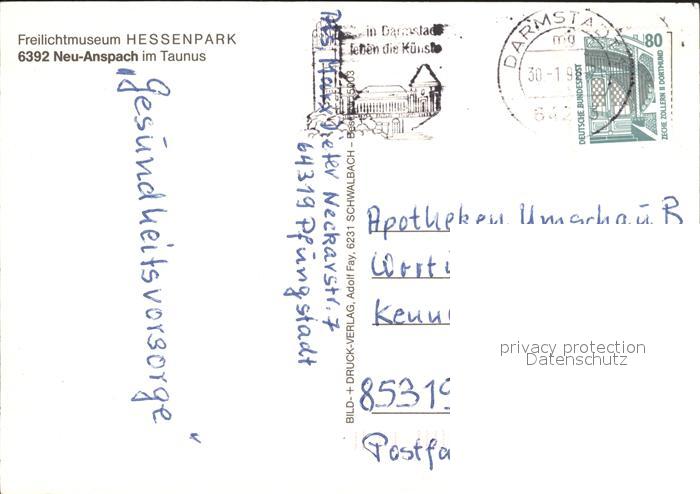 Freilichtmuseum HESSENPARK
6392 Neu-Anspach im Taunus
"Gesundheitsvorsorge"
Neckarstr. 7
64319 Pfungstadt
BILD- + DRUCK-VERLAG, Adolf Fay, 6231 SCHWALBACH –
in Darmstadt
leben die Künste
DARMSTADT
30-1.9
642
80
DEUTSCHE BUNDESPOST
ZECHE ZOLLERN II DORTMUND
Apotheken Umschau B
Worti
Kenn
85319
Postfa
privacy protection
Datenschutz